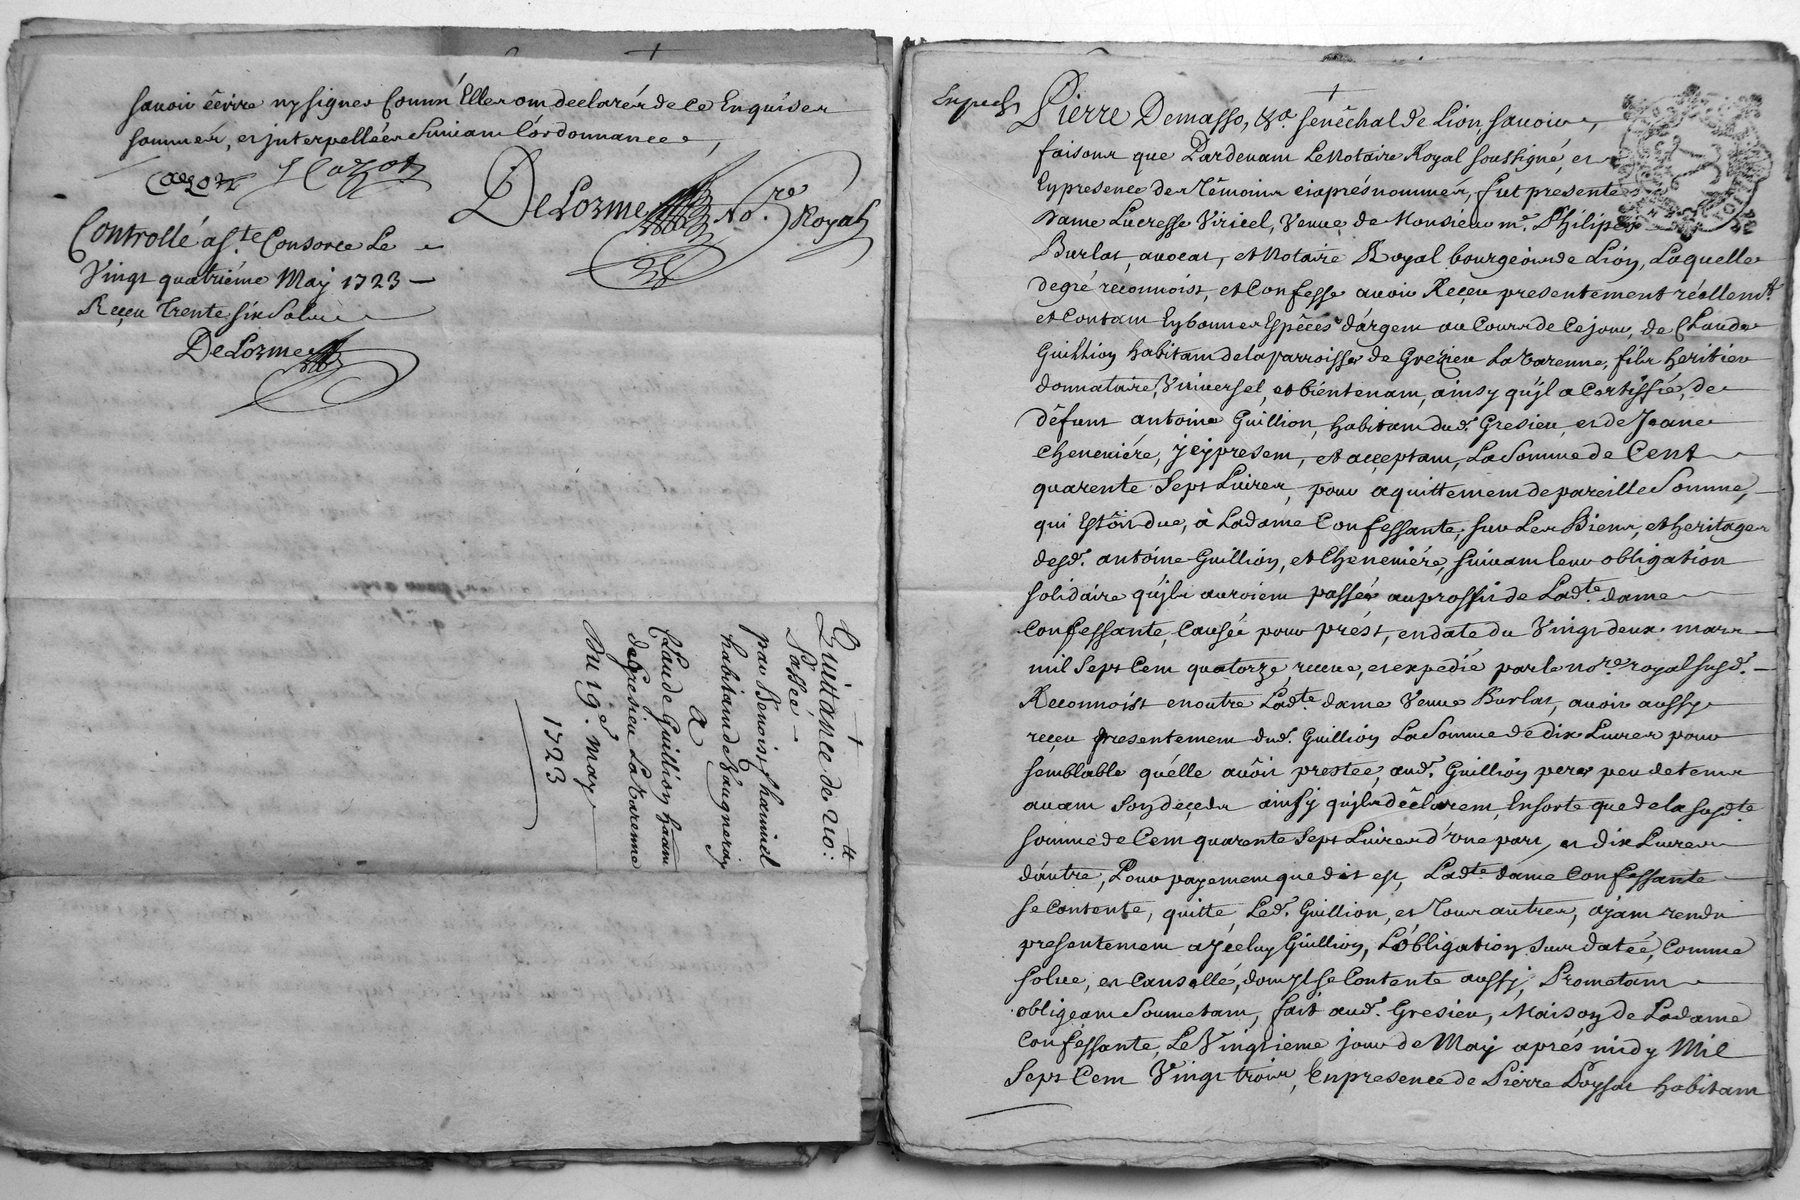 sauoir écrire ny signer Comm' Elles ont declarér de ce Enquiser
sommér, et jnterpellées Suiuant L'ordonnance,
Cazot J Cazot
DeLorme No.re Royal
Controllé a S.te Consorce Le
Vingt quatriéme May 1723
Reçeu Trente six Solz
DeLorme
Quittance de 210:
Passée
par Benoist
habitant de Vaugneray
A
Claude Guillion hatant
de Gresieu La Varenne
Du 19e. may
1723
Pierre Demasso, &a. senéchal de Lion, sauoir,
faisons que Pardeuant Le Notaire Royal soussigné, et
En presence des Témoins ciaprés nommér, fut presente
Dame Lucresse Viricel, Veuue de Monsieur me. Philipes
Burlat, auocat, et Notaire Royal bourgeois de Lion, Laquelle
degré reconnoist, et Confesse auoir Reçeu presentement réellemt.
et Contant En bonnes Espéces d'argent au Cours de Ce jour, de Claude
Guillion habitant de la parroisse de Grezieu La Varenne, fils heritier
donnataire, Vniuersel, et biéntenant, ainsy qu'jl a Certiffié, de
défunt antoine Guillion, habitant dud. Gresieu, et de Jeane
Cheneuiére, jcy present, et acçeptant, La Somme de Cent
quarente Sept Liures, pour aquittement de pareille Somme,
qui Estoit due, à La dame Confessante, sur Les Biens, et heritages
desd. antoine Guillion, et Cheneuiére, suiuant leur obligation
solidaire qu'jls auroient passée au proffit de Ladte. dame
Confessante, Causée pour prést, en date du Vingt deux mars
mil Sept Cent quatorze, receue, et expedié par le nore. royal susd.
Reconnoist en outre Ladte. dame Veuue Burlat, auoir aussy
reçeu presentement dud. Guillion La Somme de dix Liures pour
semblable qu'elle auoit prestee, aud. Guillion pere peu de tems
auant Son deçeds ainsy qu'jls déclarent, En sorte que de la susdte.
somme de Cent quarente Sept Liures d'vne part, et dix Liures
d'autre, Pour payement que dit est, Ladte. dame Confessante
se Contente, quitte, Led. Guillion, et Tous autres, ayant rendu
presentement a jceluy Guillion, L'obligation sus datée, Comme
solue, et Cansellé, dont jl se Contente aussy, Prometant
obligeant Soumetant, fait aud. Gresieu, Maison de La dame
Confessante, Le Vingtieme jour de May aprés midy Mil
Sept Cent Vingt trois, En presence de Pierre Poysat habitant